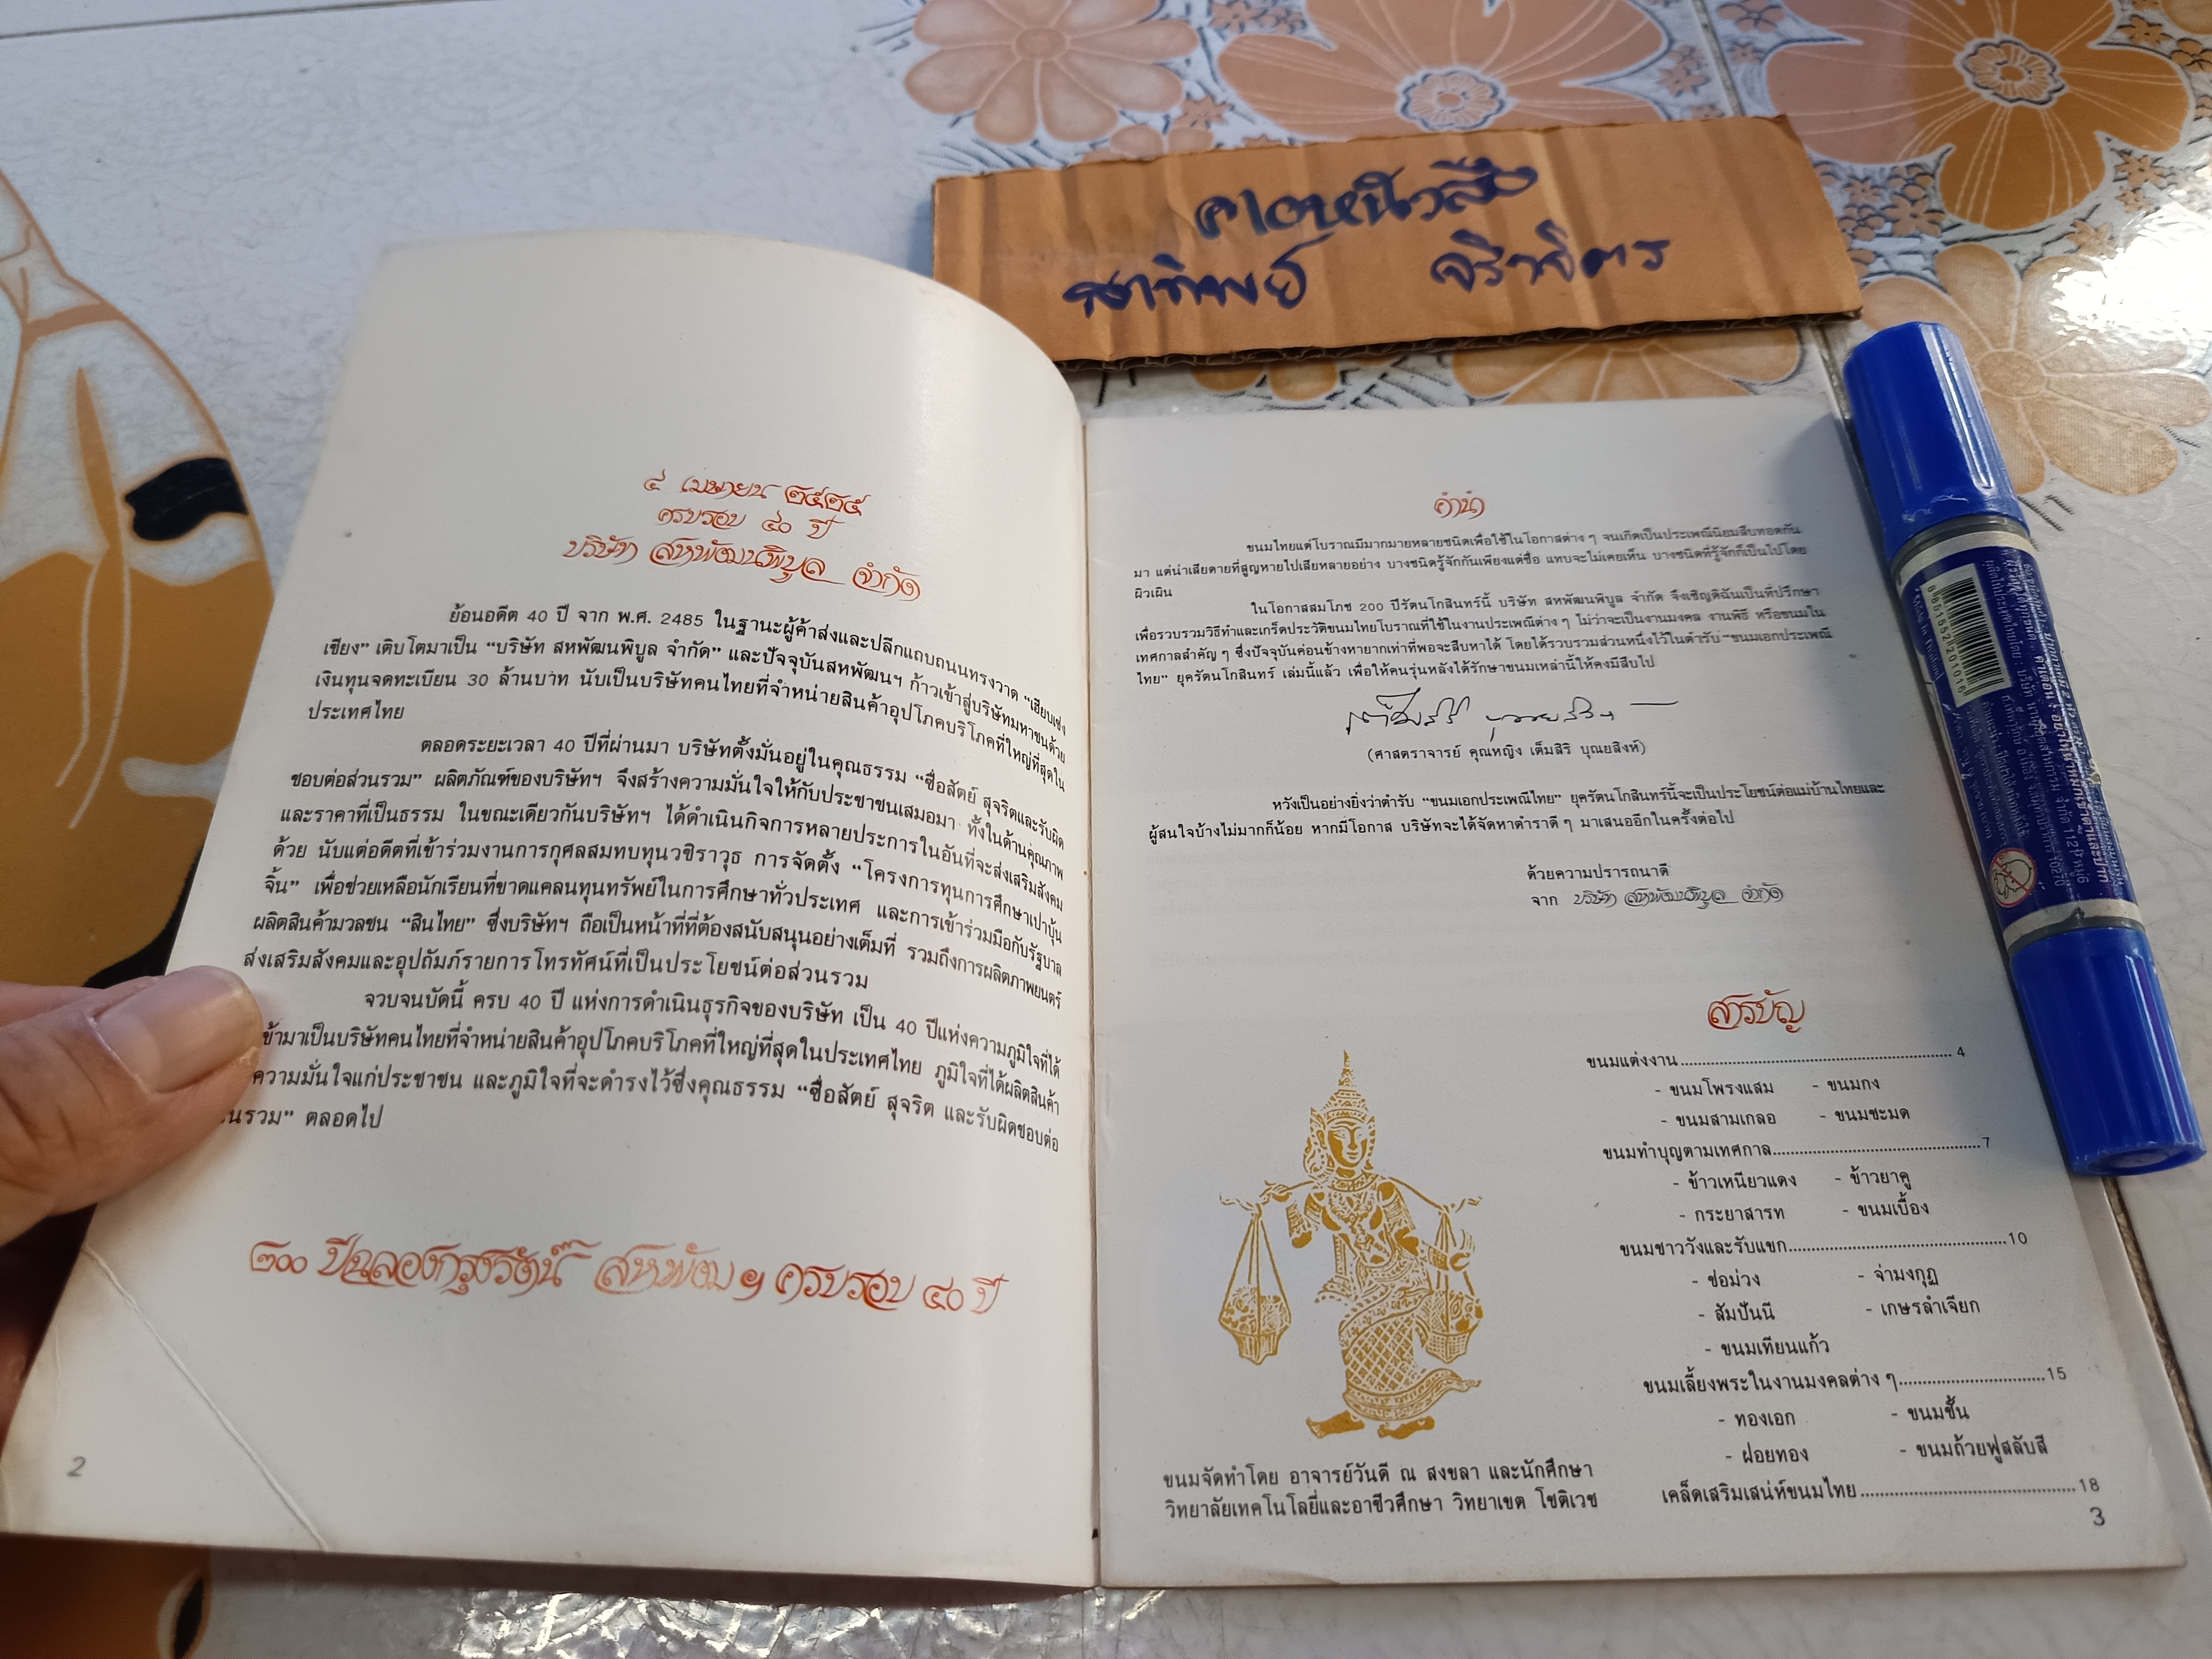 สาทิพย์ จิราจิตร
๔ เมษายน ๒๕๒๕
ครบรอบ ๔๐ ปี
บริษัท สหพัฒนพิบูล จำกัด
ย้อนอดีต 40 ปี จาก พ.ศ. 2485 ในฐานะผู้ค้าส่งและปลีกแถบถนนทรงวาด “เฮียบเซ่ง
เชียง” เติบโตมาเป็น “บริษัท สหพัฒนพิบูล จำกัด” และปัจจุบันสหพัฒนฯ ก้าวเข้าสู่บริษัทมหาชนด้วย
เงินทุนจดทะเบียน 30 ล้านบาท นับเป็นบริษัทคนไทยที่จำหน่ายสินค้าอุปโภคบริโภคที่ใหญ่ที่สุดใน
ประเทศไทย
ตลอดระยะเวลา 40 ปีที่ผ่านมา บริษัทตั้งมั่นอยู่ในคุณธรรม “ซื่อสัตย์ สุจริตและรับผิด
ชอบต่อส่วนรวม” ผลิตภัณฑ์ของบริษัทฯ จึงสร้างความมั่นใจให้กับประชาชนเสมอมา ทั้งในด้านคุณภาพ
และราคาที่เป็นธรรม ในขณะเดียวกันบริษัทฯ ได้ดำเนินกิจการหลายประการในอันที่จะส่งเสริมสังคม
ด้วย นับแต่อดีตที่เข้าร่วมงานการกุศลสมทบทุนวชิราวุธ การจัดตั้ง “โครงการทุนการศึกษาเปาบุ้น
จิ้น” เพื่อช่วยเหลือนักเรียนที่ขาดแคลนทุนทรัพย์ในการศึกษาทั่วประเทศ และการเข้าร่วมมือกับรัฐบาล
ผลิตสินค้ามวลชน “สินไทย” ซึ่งบริษัทฯ ถือเป็นหน้าที่ที่ต้องสนับสนุนอย่างเต็มที่ รวมถึงการผลิตภาพยนตร์
ส่งเสริมสังคมและอุปถัมภ์รายการโทรทัศน์ที่เป็นประโยชน์ต่อส่วนรวม
จวบจนบัดนี้ ครบ 40 ปี แห่งการดำเนินธุรกิจของบริษัท เป็น 40 ปีแห่งความภูมิใจที่ได้
ข้ามาเป็นบริษัทคนไทยที่จำหน่ายสินค้าอุปโภคบริโภคที่ใหญ่ที่สุดในประเทศไทย ภูมิใจที่ได้ผลิตสินค้า
ความมั่นใจแก่ประชาชน และภูมิใจที่จะดำรงไว้ซึ่งคุณธรรม “ซื่อสัตย์ สุจริต และรับผิดชอบต่อ
นรวม” ตลอดไป
๒๐๐ ปีฉลองกรุงรัตน์ฯ สหพัฒนฯ ครบรอบ ๔๐ ปี
2
คำนำ
ขนมไทยแต่โบราณมีมากมายหลายชนิดเพื่อใช้ในโอกาสต่าง ๆ จนเกิดเป็นประเพณีนิยมสืบทอดกัน
มา แต่น่าเสียดายที่สูญหายไปเสียหลายอย่าง บางชนิดรู้จักกันเพียงแต่ชื่อ แทบจะไม่เคยเห็น บางชนิดที่รู้จักก็เป็นไปโดย
ผิวเผิน
ในโอกาสสมโภช 200 ปีรัตนโกสินทร์นี้ บริษัท สหพัฒนพิบูล จำกัด จึงเชิญดิฉันเป็นที่ปรึกษา
เพื่อรวบรวมวิธีทำและเกร็ดประวัติขนมไทยโบราณที่ใช้ในงานประเพณีต่าง ๆ ไม่ว่าจะเป็นงานมงคล งานพิธี หรือขนมใน
เทศกาลสำคัญ ๆ ซึ่งปัจจุบันค่อนข้างหายากเท่าที่พอจะสืบหาได้ โดยได้รวบรวมส่วนหนึ่งไว้ในตำรับ “ขนมเอกประเพณี
ไทย” ยุครัตนโกสินทร์ เล่มนี้แล้ว เพื่อให้คนรุ่นหลังได้รักษาขนมเหล่านี้ให้คงมีสืบไป
เต็มสิริ บุณยสิงห์
(ศาสตราจารย์ คุณหญิง เต็มสิริ บุณยสิงห์)
หวังเป็นอย่างยิ่งว่าตำรับ “ขนมเอกประเพณีไทย” ยุครัตนโกสินทร์นี้จะเป็นประโยชน์ต่อแม่บ้านไทยและ
ผู้สนใจบ้างไม่มากก็น้อย หากมีโอกาส บริษัทจะได้จัดหาตำราดี ๆ มาเสนออีกในครั้งต่อไป
ด้วยความปรารถนาดี
จาก บริษัท สหพัฒนพิบูล จำกัด
สารบัญ
ขนมแต่งงาน........................................4
- ขนมโพรงแสม - ขนมกง
- ขนมสามเกลอ - ขนมชะมด
ขนมทำบุญตามเทศกาล........................................7
- ข้าวเหนียวแดง - ข้าวยาคู
- กระยาสารท - ขนมเบื้อง
ขนมชาววังและรับแขก........................................10
- ช่อม่วง - จ่ามงกุฎ
- สัมปันนี - เกษรลำเจียก
- ขนมเทียนแก้ว
ขนมเลี้ยงพระในงานมงคลต่าง ๆ..............................15
- ทองเอก - ขนมชั้น
- ฝอยทอง - ขนมถ้วยฟูสลับสี
เคล็ดเสริมเสน่ห์ขนมไทย........................................18
ขนมจัดทำโดย อาจารย์วันดี ณ สงขลา และนักศึกษา
วิทยาลัยเทคโนโลยี่และอาชีวศึกษา วิทยาเขต โชติเวช
3